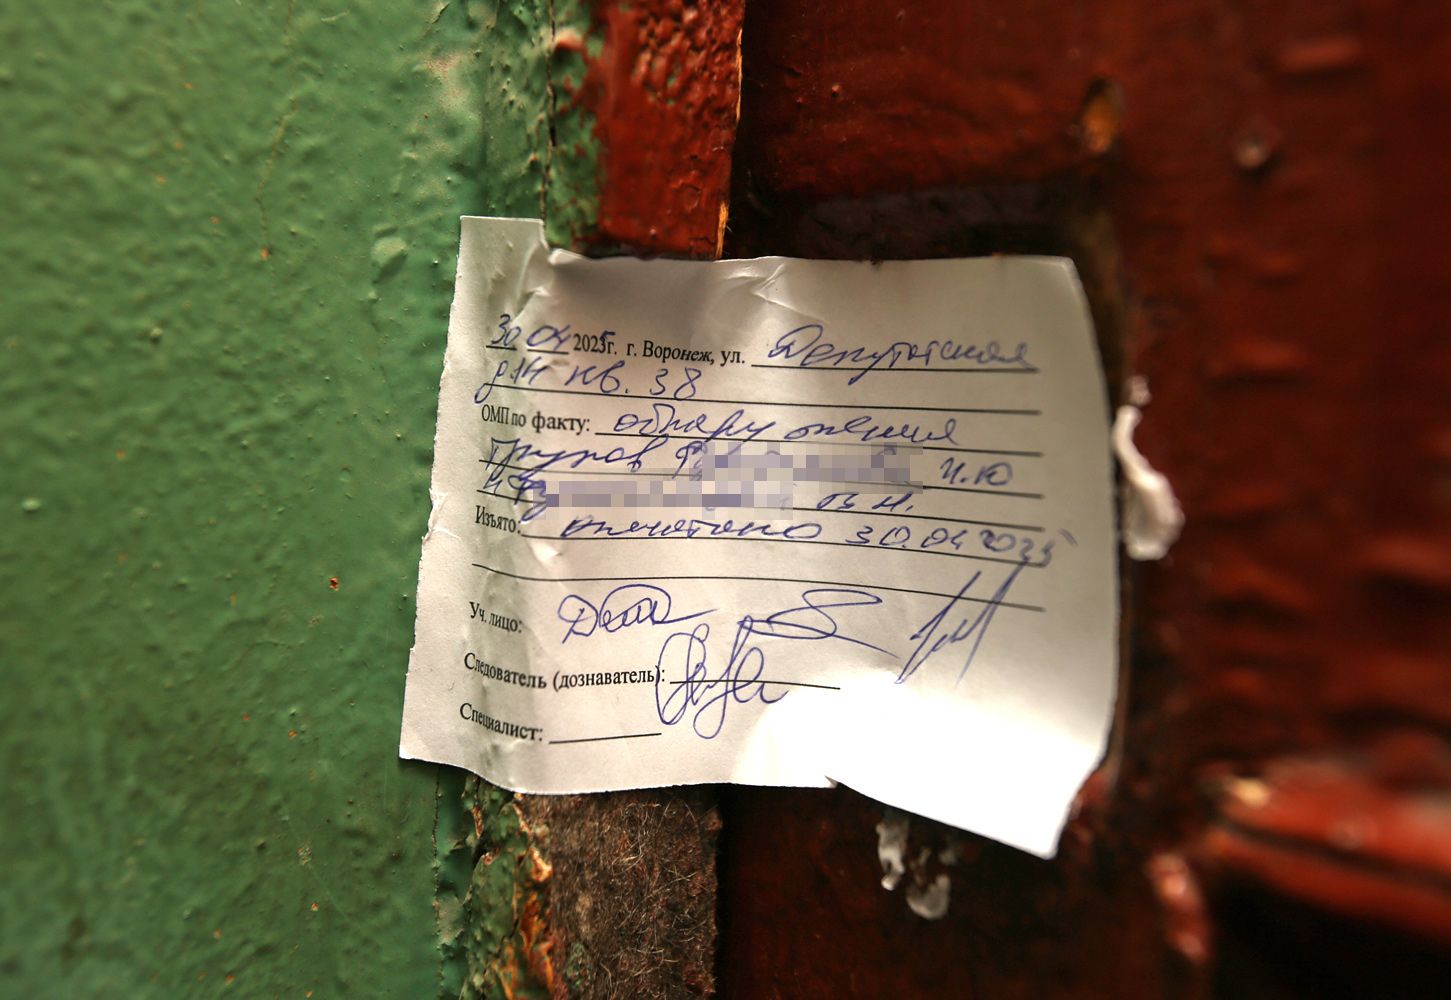 30.04 2025г. г. Воронеж, ул. Депутатская
д.14 кв. 38
ОМП по факту: обнаружения
трупов Ф И.Ю
и Фу В.Н.
Изъято: опечатано 30.04 2025
Уч. лицо:
Следователь (дознаватель):
Специалист: